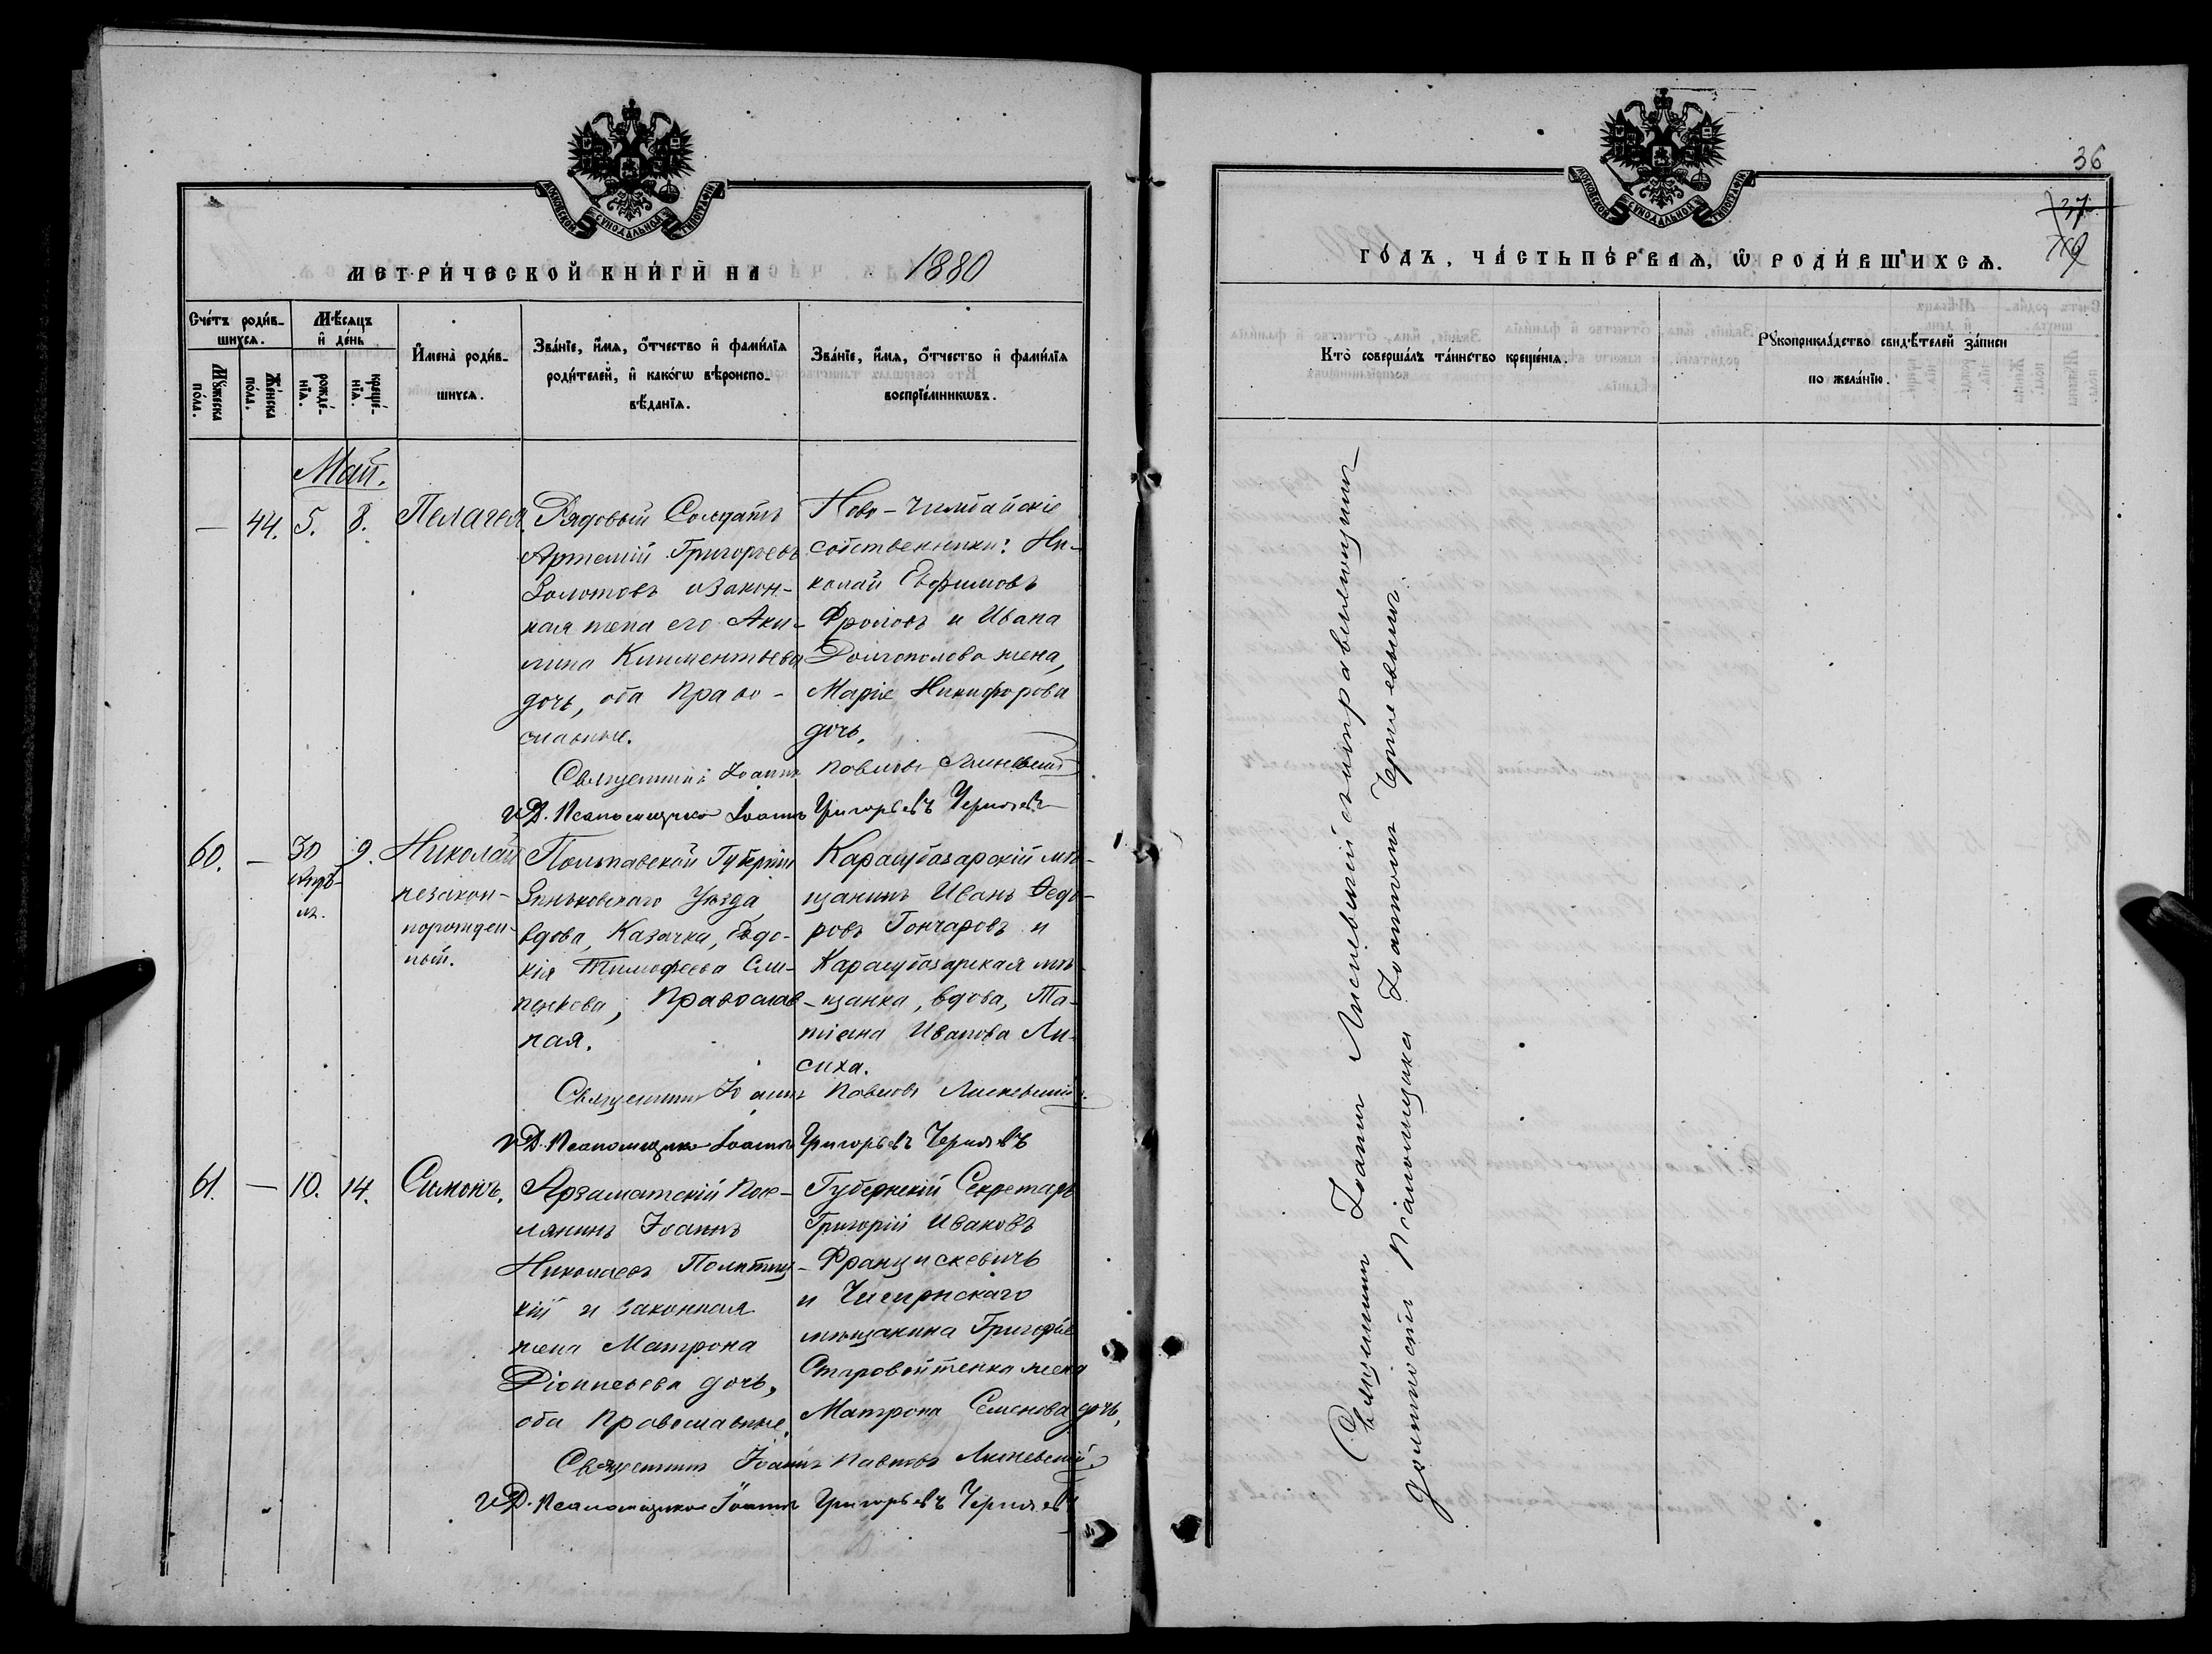 МОСКОВСКОЙ СѴНОДАЛЬНОЙ ТИПОГРАФІИ
МЕТРИ́ЧЕСКОЙ КНИ́ГИ НА 1880
Сче́тъ роди́в-
шихсѧ.
Мꙋ́жеска по́ла.
Же́нска по́ла.
Мѣ́сѧцъ
и҆ де́нь
рожде́-
нїѧ.
креще́-
нїѧ.
И҆мена̀ роди́в-
шихсѧ.
Зва́нїе, и҆́мѧ, ѻ҆́тчество и҆ фами́лїѧ
роди́телей, и҆ како́гѡ вѣроиспо-
вѣ́данїѧ.
Зва́нїе, и҆́мѧ, ѻ҆́тчество и҆ фами́лїѧ
воспрїе́мникѡвъ.
Май.
— 44. 5. 8. Пелагея.
Рядовый Солдатъ
Артемій Григорьевъ
Золотовъ и Закон-
ная жена его Аки-
лина Климентьева
дочь, оба Право-
славные.
Ново-Чимбайскіе
собственники: Ни-
колай Ефимовъ
Фроловъ и Ивана
Долгополова жена,
Марія Никифорова
дочь.
Священникъ Іоаннъ Павловъ
И.Д. Псаломщика Іоаннъ Григорьевъ Черняевъ
60. — 30 Апрѣ-
ля. 9. Николай
незакон-
норожден-
ный.
Полтавской Губерніи
Зеньковскаго Уѣзда
вдова, Казачка, Евдо-
кія Тимофеева Сли-
, Православ-
ная.
Карасубазарскій мѣ-
щанинъ Иванъ Ѳедо-
ровъ Гончаровъ и
Карасубазарская мѣ-
щанка, вдова, Та-
тіана Иванова Ли-
сиха.
Священникъ Іоаннъ Павловъ
И.Д. Псаломщика Іоаннъ Григорьевъ Черняевъ
61. — 10. 14. Симонъ.
Посе-
лянинъ Іоаннъ
Николаевъ
кій и законная
жена Матрона
Діонисьева дочь,
оба Православные.
Губернскій Секретарь
Григорій Ивановъ
Францискевичъ
и
мѣщанина Григорія
Старовойтенка жена
Матрона Семенова дочь.
Священникъ Іоаннъ Павловъ
И.Д. Псаломщика Іоаннъ Григорьевъ Черняевъ
МОСКОВСКОЙ СѴНОДАЛЬНОЙ ТИПОГРАФІИ
36
37
ГО́ДЪ, ЧА́СТЬ ПЕ́РВАѦ, Ѡ҆ РОДИ́ВШИХСѦ.
Кто̀ соверша́лъ та́инство креще́нїѧ.
Рꙋкоприкла́дство свидѣ́телей за́писи
по жела́нїю.
Священникъ Іоаннъ съ исправляющимъ
должность Псаломщика Іоанномъ Черняевымъ.